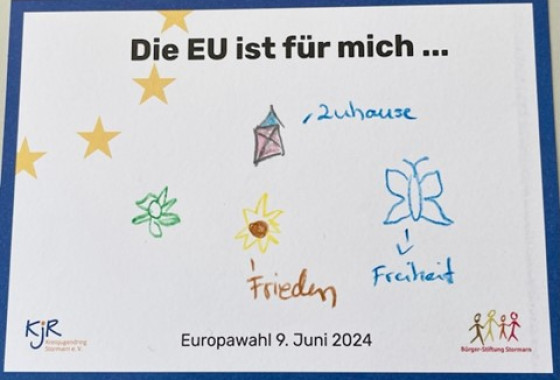 Die EU ist für mich ...
Zuhause
Frieden
Freiheit
KJR
Kreisjugendring
Stormarn e.V.
Europawahl 9. Juni 2024
Bürger-Stiftung Stormarn